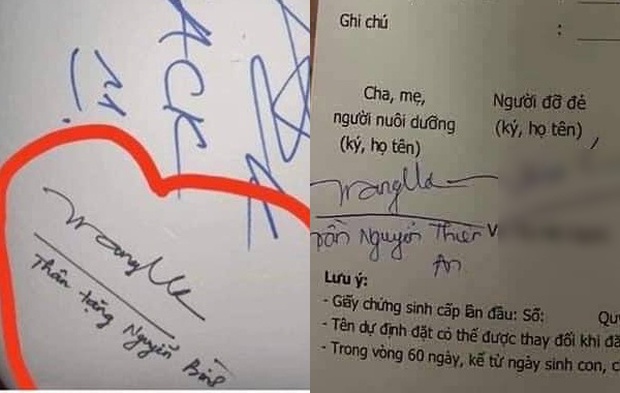 ACK
Thân tặng Nguyễn
Ghi chú :
Cha, mẹ,
người nuôi dưỡng
(ký, họ tên)
Người đỡ đẻ
(ký, họ tên)
Trần Nguyễn Thiên
An
Lưu ý:
- Giấy chứng sinh cấp lần đầu: Số: Qu
- Tên dự định đặt có thể được thay đổi khi đă
- Trong vòng 60 ngày, kể từ ngày sinh con, c